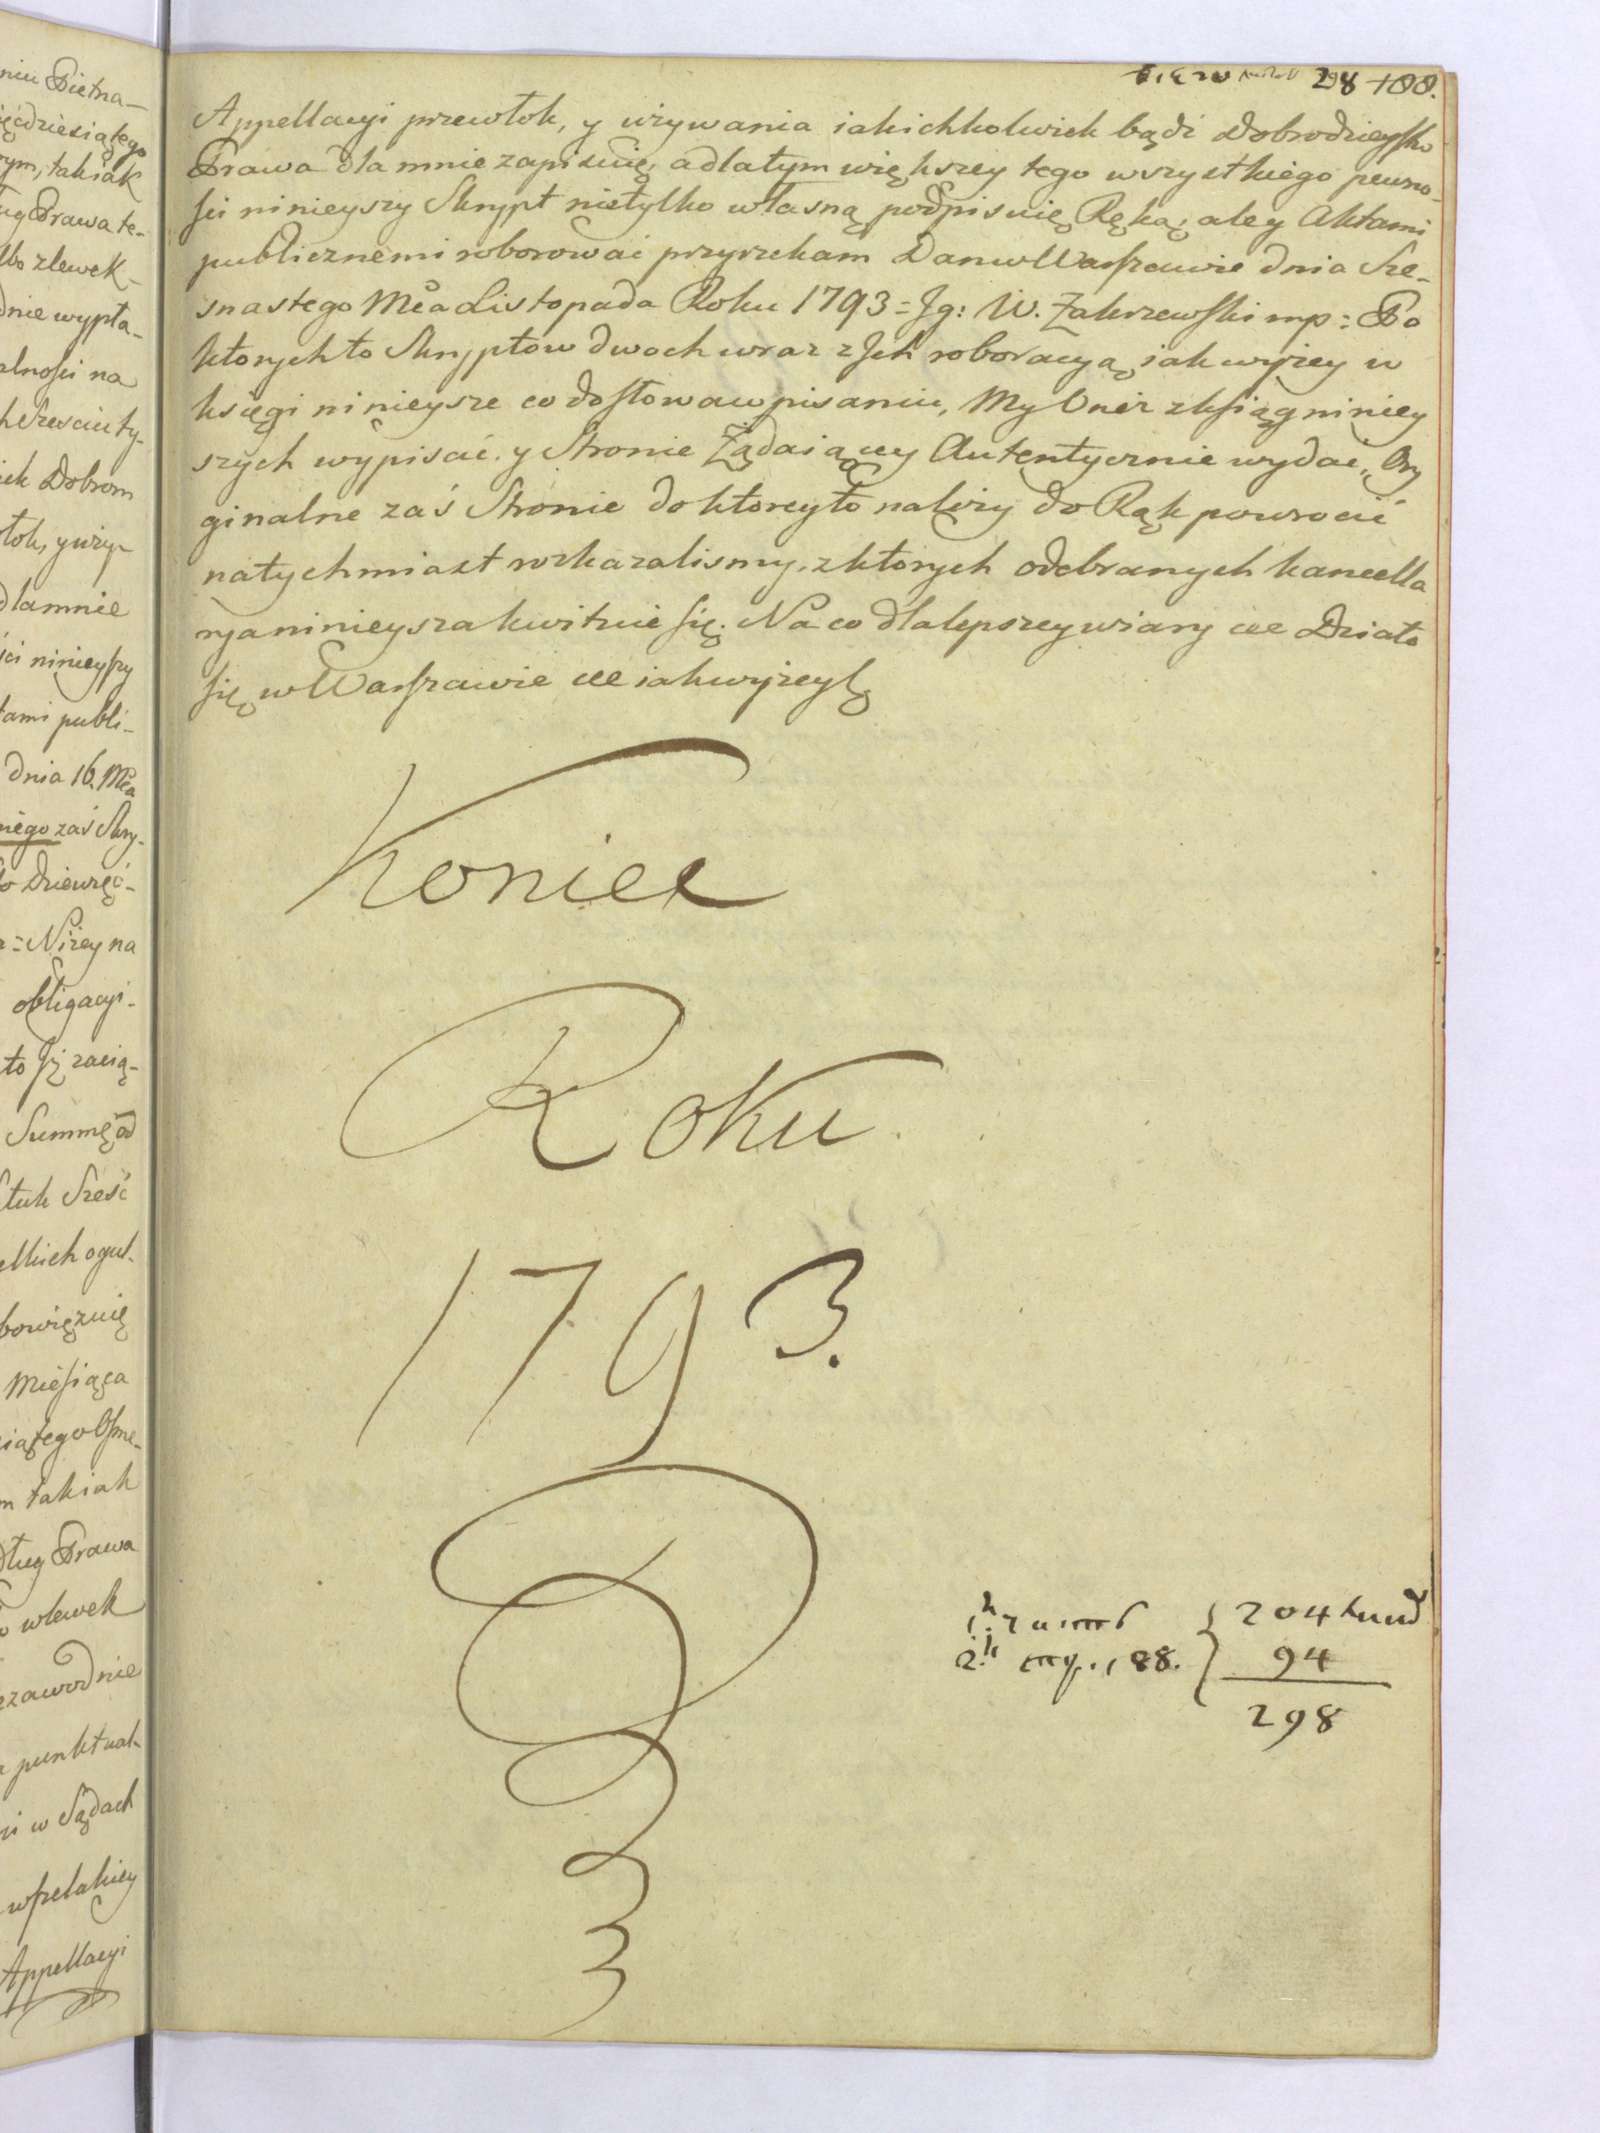 298 188.
Appellacyi przewłok, y używania iakichkolwiek bądź Dobrodzieystw
Prawa dla mnie zapisuię, a dla tym większey tego wszystkiego pewno-
ści ninieyszy Skrypt nietylko własną podpisuię Ręką, ale y Aktami
publicznemi roborować przyrzekam Dan w Warszawie dnia Sze-
snastego Mca Listopada Roku 1793 = Jg: W. Zakrzewski mp: Po
ktorych to Skryptow dwoch wraz z Jch roboracyą iak wyżey w
księgi ninieysze co do słowa wpisaniu, My Onez z ksiąg niniey
szych wypisać y Stronie Żądaiącey Autentycznie wydać, Ory
ginalne zaś Stronie do ktorey to należy do Rąk powrocić
natychmiast rozkazalismy, z ktorych odebranych kancella
rya ninieysza kwituie się. Na co dla lepszey wiary etc Działo
się w Warszawie etc iak wyżey
Koniec
Roku
1793.
204
188. 94
298
niu Pietna-
ięcdziesiątego
rym, tak iak
ług Prawa te-
lbo zlewek-
dnie wypła-
alności na
ch Sześciu ty-
iek Dobrom
łok, y uży-
dla mnie
ści ninieyszy
tami publi-
dnia 16. Mca
niego zaś Skry-
o Dziewięć-
= Niżey na
obligacyi-
to się zacią-
Summę od
Sztuk Sześć
elkich ogul-
bowięzuię
Miesiąca
iątego Osme-
m tak iak
dług Prawa
o wlewek
ezawodnie
punktual-
yi w Sądach
wszelakiey
Appellacyi